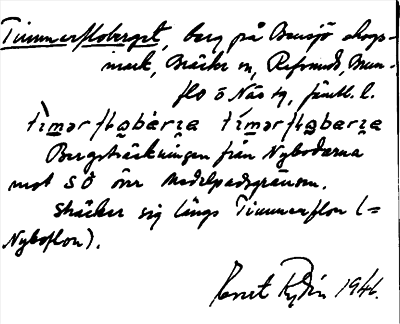 Timmerfloberget, berg på Bensjö skogs-
mark, Bräcke sn, Refsunds, Brun-
flo o Näs tg, Jämtl. l.
tìmərflɷbæ̀rɪɛ tímərflɷbærɪɛ
Bergsträckningen från Nybodarna
mot SÖ över Medelpadsgränsen.
Sträcker sig längs Timmerflon (=
Nyboflon).
Bernt Rydén 1941.